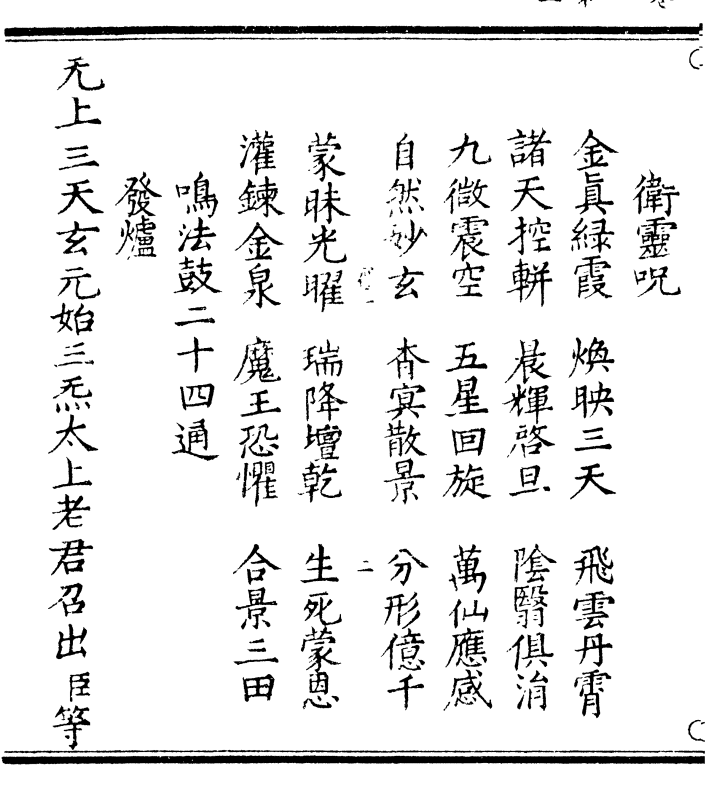 衛靈呪
金眞綠霞　煥映三天　飛雲丹霄
諸天控軿　晨輝啓旦　陰翳俱消
九微震空　五星回旋　萬仙應感
自然妙玄　杳冥散景　分形億千
二
蒙昧光曜　瑞降壇乾　生死蒙恩
灌鍊金泉　魔王恐懼　合景三田
鳴法鼓二十四通
發爐
旡上三天玄元始三炁太上老君召出臣等